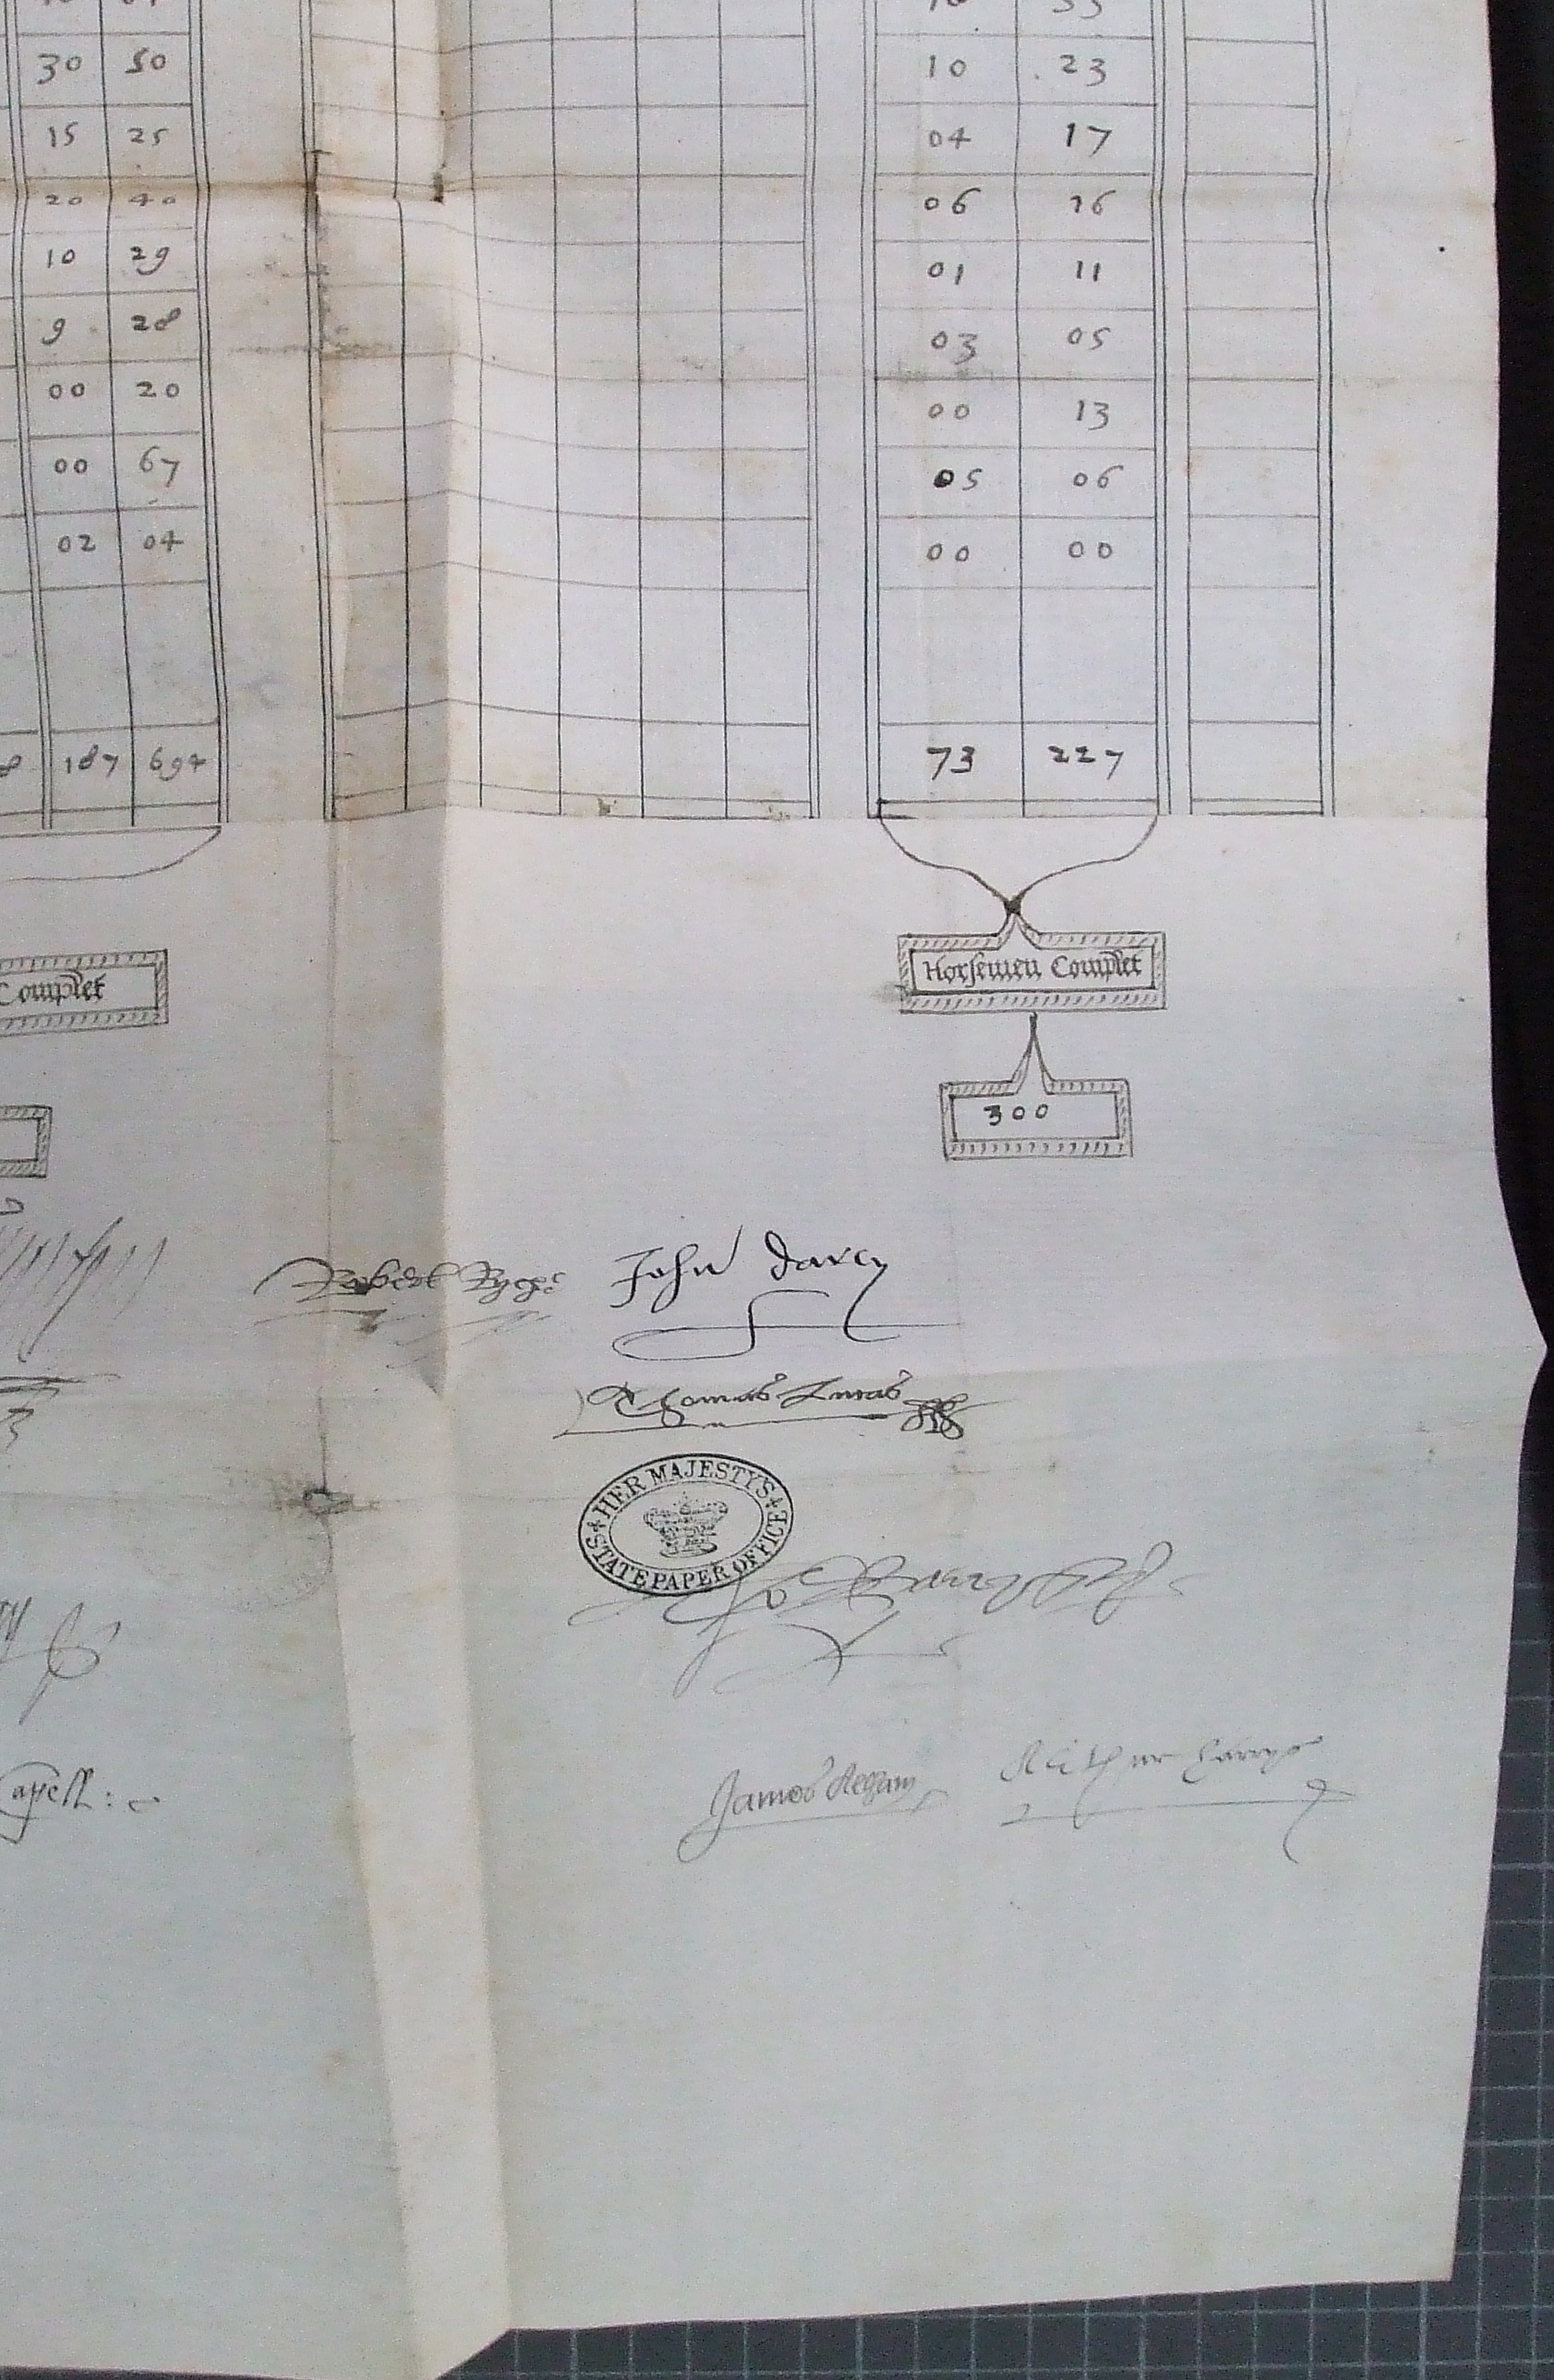 30 50 10 23
15 25 04 17
20 40 06 16
10 29 01 11
9 28 03 05
00 20 00 13
00 67 05 06
02 04 00 00
187 694 73 227
Complet Horsemen Complet
300
Robert Ryche John Darcy
Thomas Lucas
HER MAJESTY'S
STATE PAPER OFFICE
apell:
James Arthur